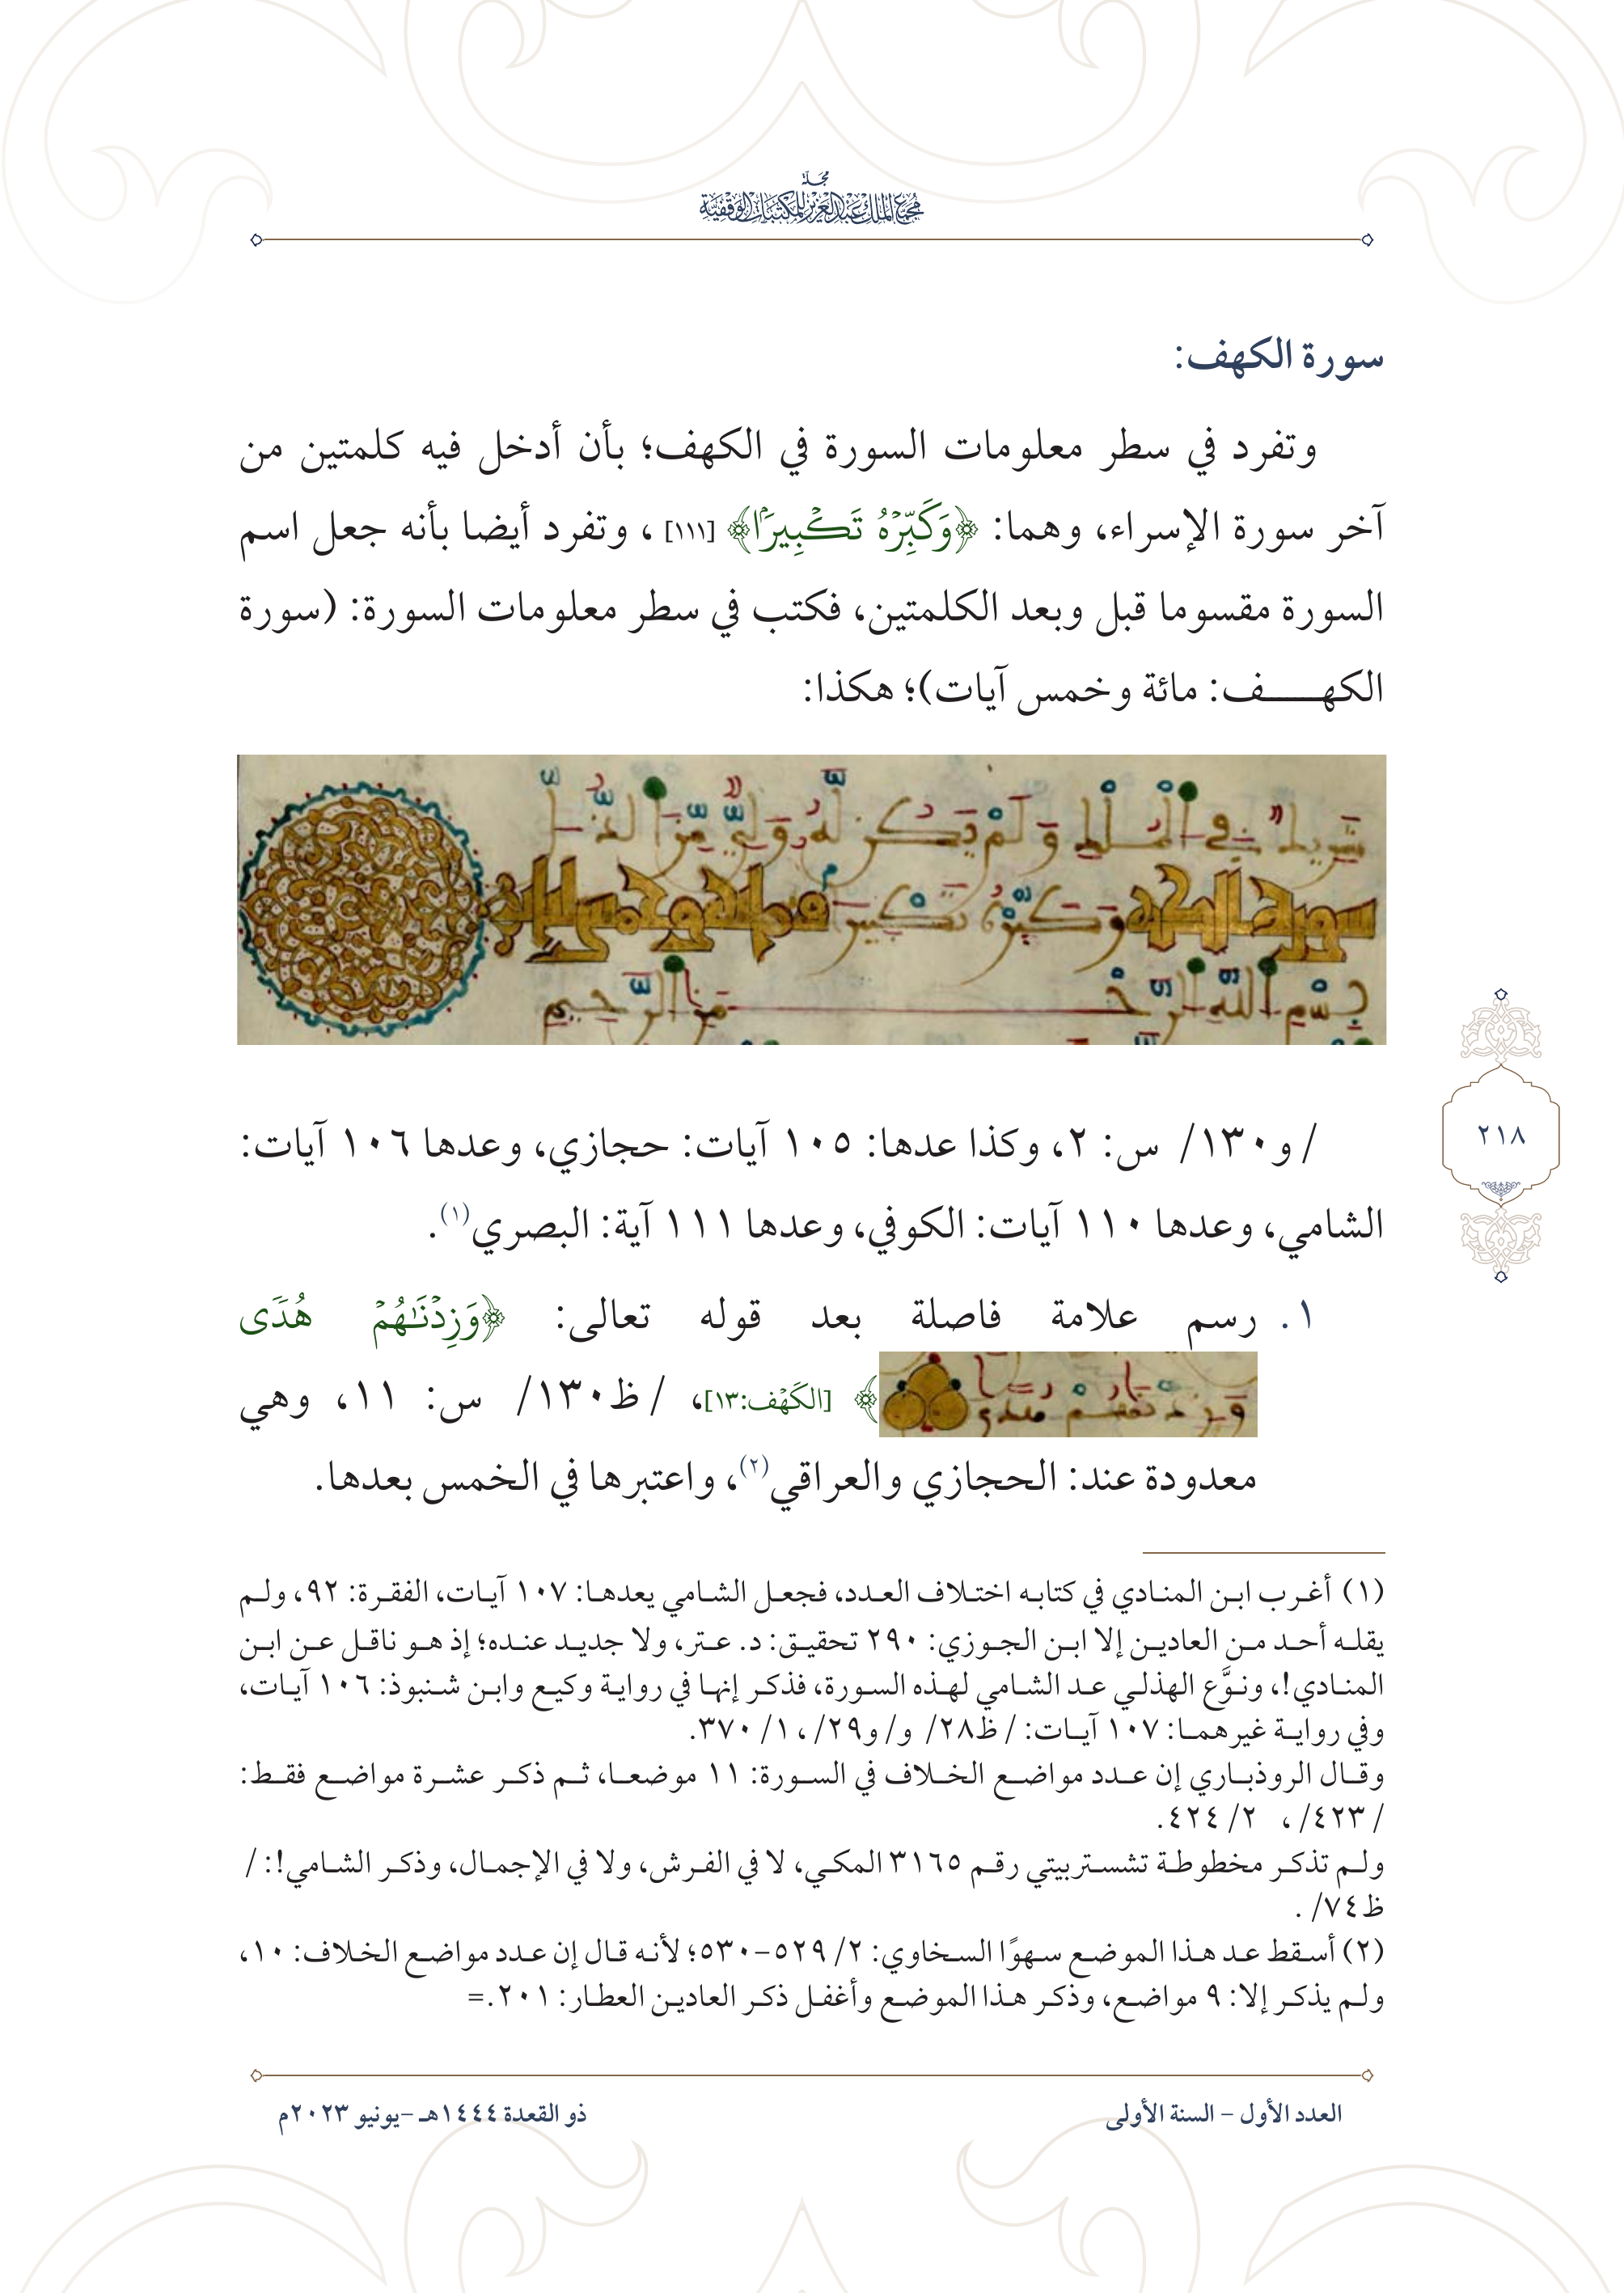 مجلة
مجمع الملك عبدالعزيز للمكتبات الوقفية
سورة الكهف:
وتفرد في سطر معلومات السورة في الكهف؛ بأن أدخل فيه كلمتين من
آخر سورة الإسراء، وهما: ﴿وَكَبِّرْهُ تَكْبِيرًا﴾ [١١١] ، وتفرد أيضا بأنه جعل اسم
السورة مقسوما قبل وبعد الكلمتين، فكتب في سطر معلومات السورة: (سورة
الكهـــــف: مائة وخمس آيات)؛ هكذا:
شريك في الملك ولم يكن له ولي من الذل
سورة الكهف وكبره تكبيرا مائة وخمس آيات
بسم الله الرحمن الرحيم
/و١٣٠/ س: ٢، وكذا عدها: ١٠٥ آيات: حجازي، وعدها ١٠٦ آيات:
الشامي، وعدها ١١٠ آيات: الكوفي، وعدها ١١١ آية: البصري(١).
٢١٨
١. رسم علامة فاصلة بعد قوله تعالى: ﴿وَزِدْنَٰهُمْ هُدًى
وزدنهم هدى ﴾ [الكَهْف:١٣]، /ظ١٣٠/ س: ١١، وهي
معدودة عند: الحجازي والعراقي(٢)، واعتبرها في الخمس بعدها.
(١) أغرب ابن المنادي في كتابه اختلاف العدد، فجعل الشامي يعدها: ١٠٧ آيات، الفقرة: ٩٢، ولم
يقله أحد من العادين إلا ابن الجوزي: ٢٩٠ تحقيق: د. عتر، ولا جديد عنده؛ إذ هو ناقل عن ابن
المنادي!، ونوَّع الهذلي عد الشامي لهذه السورة، فذكر إنها في رواية وكيع وابن شنبوذ: ١٠٦ آيات،
وفي رواية غيرهما: ١٠٧ آيات: /ظ٢٨/ و/و٢٩/، ١/ ٣٧٠.
وقال الروذباري إن عدد مواضع الخلاف في السورة: ١١ موضعا، ثم ذكر عشرة مواضع فقط:
/٤٢٣/، ٢/ ٤٢٤.
ولم تذكر مخطوطة تشستربيتي رقم ٣١٦٥ المكي، لا في الفرش، ولا في الإجمال، وذكر الشامي!: /
ظ٧٤/ .
(٢) أسقط عد هذا الموضع سهوًا السخاوي: ٢/ ٥٢٩-٥٣٠؛ لأنه قال إن عدد مواضع الخلاف: ١٠،
ولم يذكر إلا: ٩ مواضع، وذكر هذا الموضع وأغفل ذكر العادين العطار: ٢٠١.=
العدد الأول – السنة الأولى
ذو القعدة ١٤٤٤هـ –يونيو ٢٠٢٣م